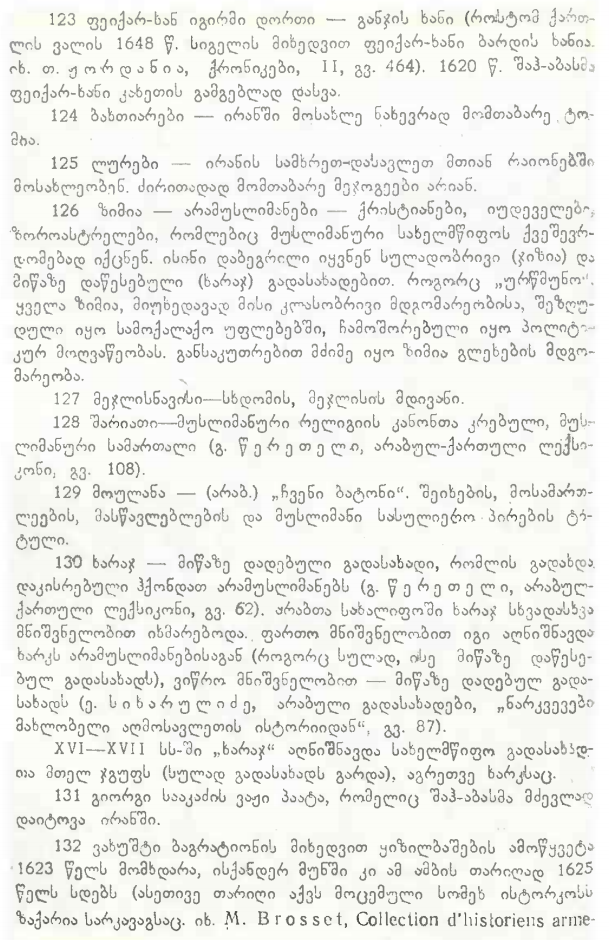 123 ფეიქარ-ხან იგირმი დორთი — განჯის ხანი (როსტომ ქართ-
ლის ვალის 1648 წ. სიგელის მიხედვით ფეიქარ-ხანი ბარდის ხანია.
იხ. თ. ჟორდანია, ქრონიკები, II, გვ. 464). 1620 წ. შაჰ-აბასმა
ფეიქარ-ხანი კახეთის გამგებლად დასვა.
124 ბახთიარები — ირანში მოსახლე ნახევრად მომთაბარე ტო-
მხა.
125 ლურები — ირანის სამხრეთ-დასავლეთ მთიან რაიონებში
მოსახლეობენ. ძირითადად მომთაბარე მეჯოგეები არიან.
126 ზიმია — არამუსლიმანები — ქრისტიანები, იუდეველები,
ზოროასტრელები, რომლებიც მუსლიმანური სახელმწიფოს ქვეშევრ-
დომებად იქცნენ. ისინი დაბეგრილი იყვნენ სულადობრივი (ჯიზია) და
მიწაზე დაწესებული (ხარაჯ) გადასახადებით. როგორც „ურწმუნო“.
ყველა ზიმია, მიუხედავად მისი კლასობრივი მდგომარეობისა, შეზღუ-
დული იყო სამოქალაქო უფლებებში, ჩამოშორებული იყო პოლიტი-
კურ მოღვაწეობას. განსაკუთრებით მძიმე იყო ზიმია გლეხების მდგო-
მარეობა.
127 მეჯლისნავისი—სხდომის, მეჯლისის მდივანი.
128 შარიათი—მუსლიმანური რელიგიის კანონთა კრებული, მუს-
ლიმანური სამართალი (გ. წერეთელი, არაბულ-ქართული ლექსი-
კონი, გვ. 108).
129 მოულანა — (არაბ.) „ჩვენი ბატონი“. შეიხების, მოსამართ-
ლეების, მასწავლებლების და მუსლიმანი სასულიერო პირების ტი-
ტული.
130 ხარაჯ — მიწაზე დადებული გადასახადი, რომლის გადახდა
დაკისრებული ჰქონდათ არამუსლიმანებს (გ. წერეთელი, არაბულ-
ქართული ლექსიკონი, გვ. 62). არაბთა სახალიფოში ხარაჯ სხვადასხვა
მნიშვნელობით იხმარებოდა. ფართო მნიშვნელობით იგი აღნიშნავდა
ხარკს არამუსლიმანებისაგან (როგორც სულად, ისე მიწაზე დაწესე-
ბულ გადასახადს), ვიწრო მნიშვნელობით — მიწაზე დადებულ გადა-
სახადს (ე. სიხარულიძე, არაბული გადასახადები, „ნარკვევები
მახლობელი აღმოსავლეთის ისტორიიდან“, გვ. 87).
XVI—XVII სს-ში „ხარაჯ“ აღნიშნავდა სახელმწიფო გადასახად-
თა მთელ ჯგუფს (სულად გადასახადს გარდა), აგრეთვე ხარკსაც.
131 გიორგი სააკაძის ვაჟი პაატა, რომელიც შაჰ-აბასმა მძევლად
დაიტოვა ირანში.
132 ვახუშტი ბაგრატიონის მიხედვით ყიზილბაშების ამოწყვეტა
1623 წელს მომხდარა, ისქანდერ მუნში კი ამ ამბის თარიღად 1625
წელს სდებს (ასეთივე თარიღი აქვს მოცემული სომეხ ისტორკოსს
ზაქარია სარკავაგსაც. იხ. M. Brosset, Collection d'historiens arme-